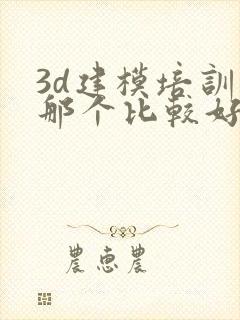 3d建模培訓
那个比較好
農恵農